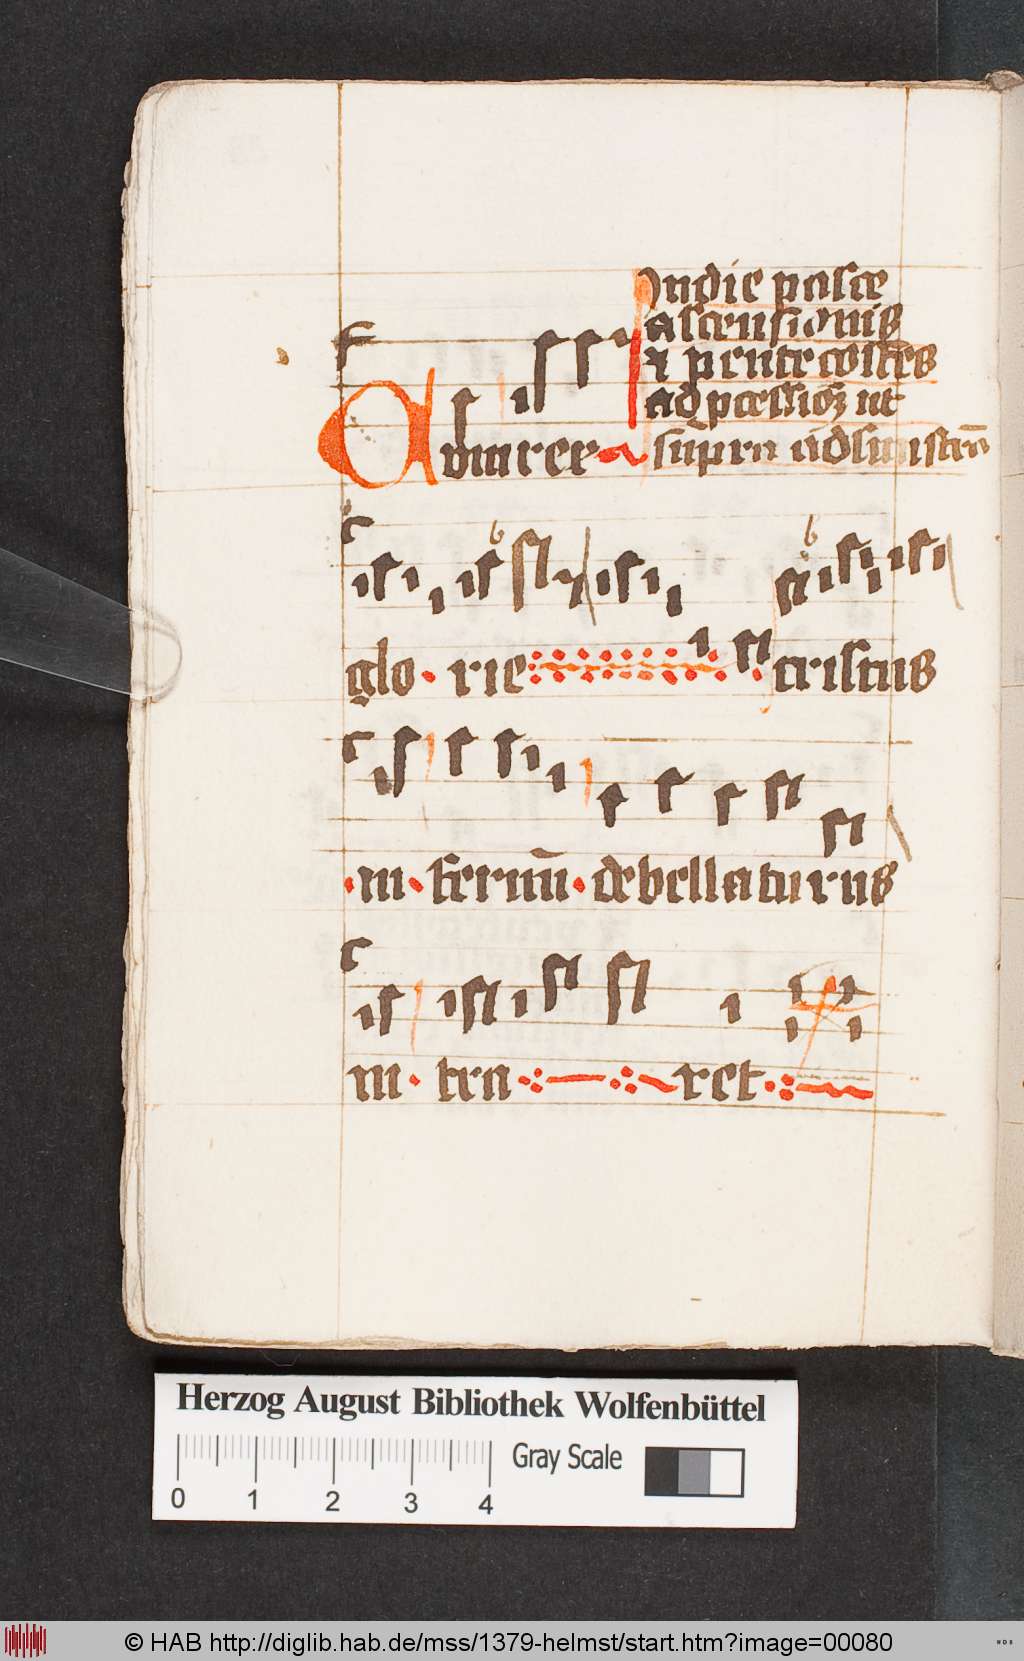 In die pasce
ascensionis
et pentecostes
ad pcessioz ut
sup̄ra ad sinistrā
Cum rex
glo rie cristus
in fernū debellaturus
in tra ret
Herzog August Bibliothek Wolfenbüttel
Gray Scale
0 1 2 3 4
© HAB http://diglib.hab.de/mss/1379-helmst/start.htm?image=00080